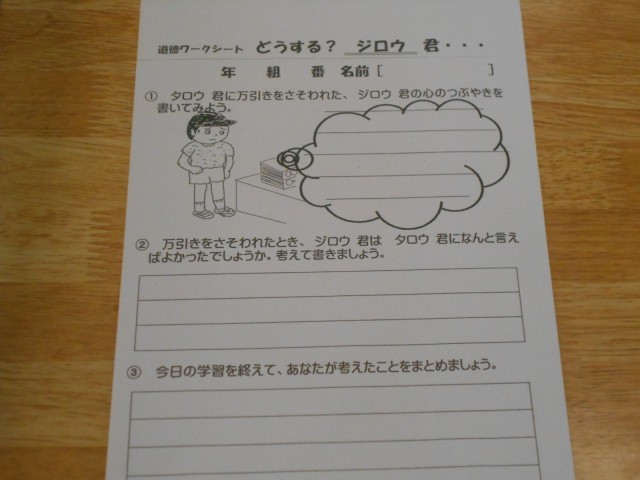 道徳ワークシート どうする？ ジロウ 君・・・
年 組 番 名前[ ]
① タロウ 君に万引きをさそわれた、ジロウ 君の心のつぶやきを
書いてみよう。
② 万引きをさそわれたとき、ジロウ 君は タロウ 君になんと言え
ばよかったでしょうか。考えて書きましょう。
③ 今日の学習を終えて、あなたが考えたことをまとめましょう。